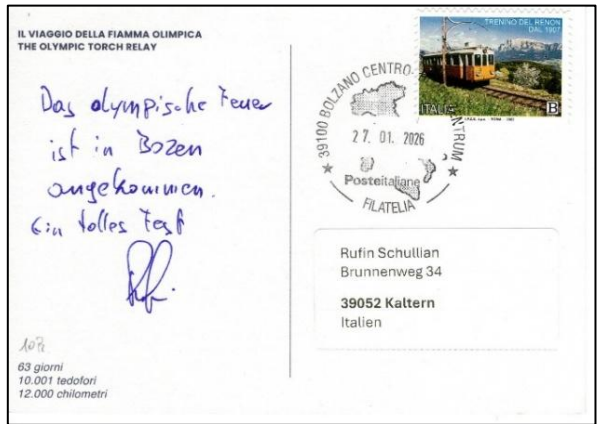 IL VIAGGIO DELLA FIAMMA OLIMPICA
THE OLYMPIC TORCH RELAY
Das olympische Feuer
ist in Bozen
angekommen.
Ein tolles Fest
63 giorni
10.001 tedofori
12.000 chilometri
TRENINO DEL RENON
DAL 1907
ITALIA B
39100 BOLZANO CENTRO
27. 01. 2026
Posteitaliane
FILATELIA
Rufin Schullian
Brunnenweg 34
39052 Kaltern
Italien